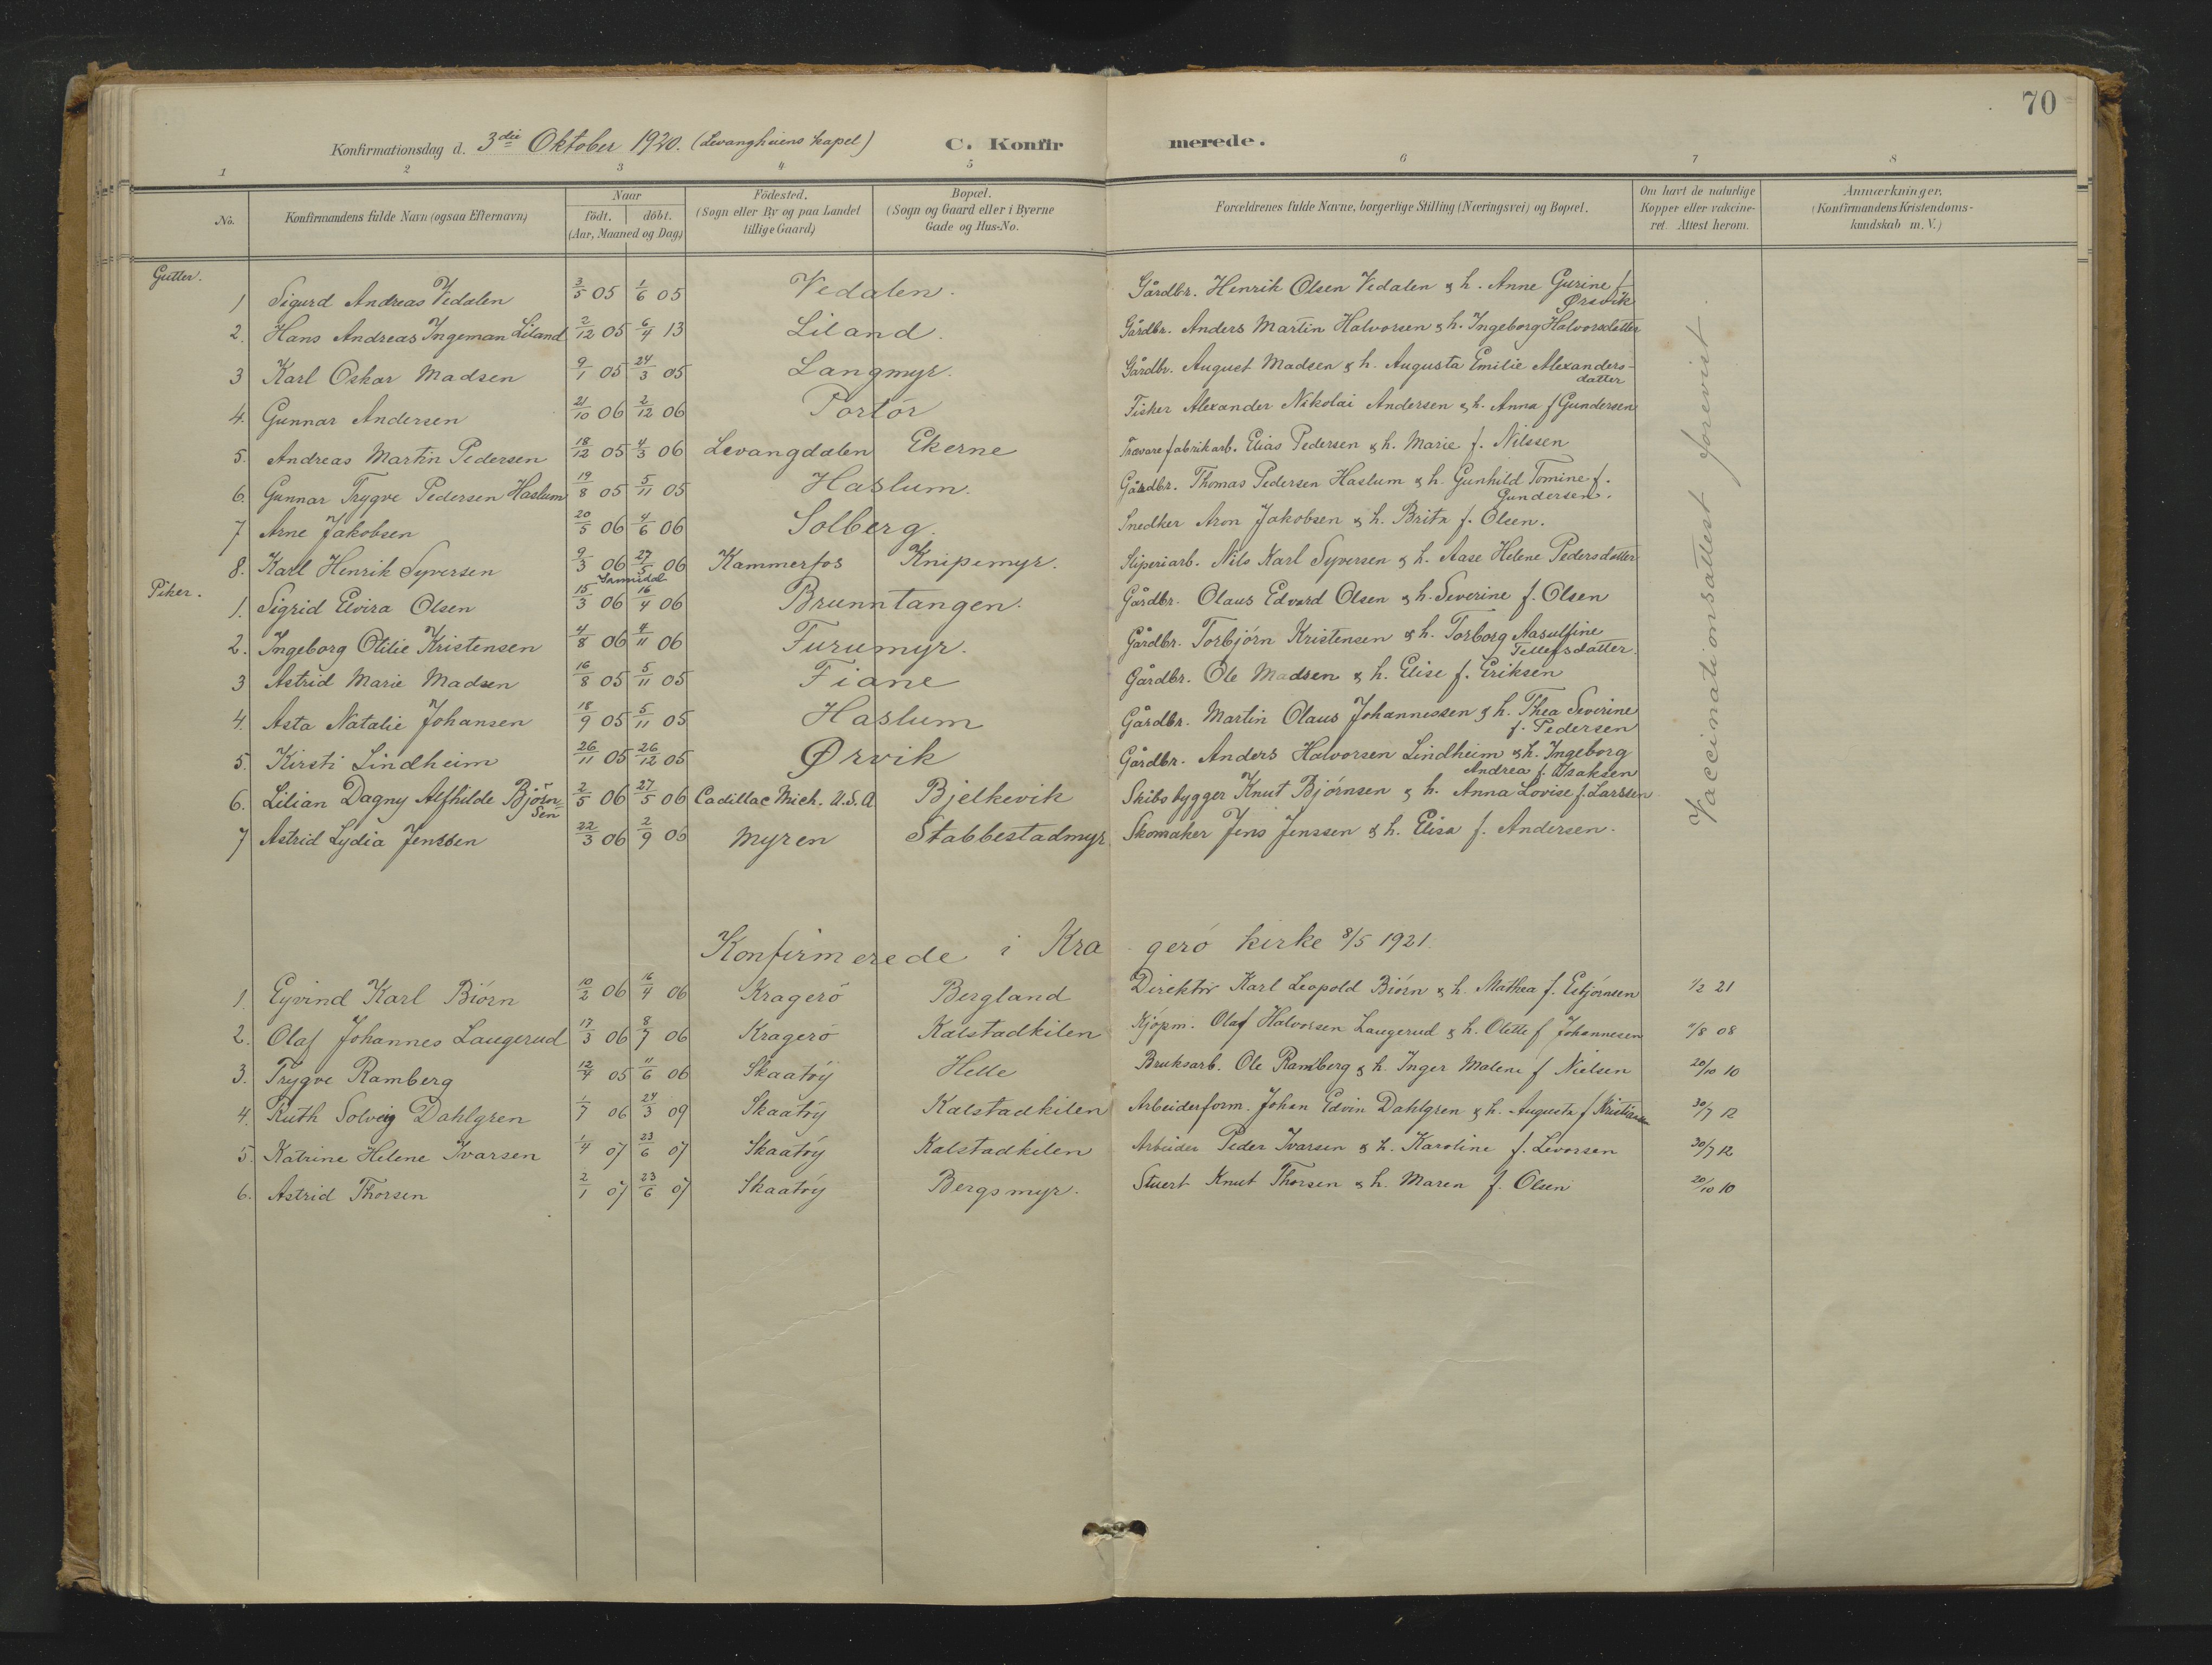 70
Konfirmationsdag d. 3die Oktober 1920. (Levangheiens kapel) C. Konfir merede.
1 2 3 4 5 6 7 8
No. Konfirmandens fulde Navn (ogsaa Efternavn) Naar födt. döbt. (Aar, Maaned og Dag) Födested. (Sogn eller By og paa Landet tillige Gaard) Bopæl. (Sogn og Gaard eller i Byerne Gade og Hus-No. Forældrenes fulde Navne, borgerlige Stilling (Næringsvei) og Bopæl. Om havt de naturlige Kopper eller vakcineret. Attest herom. Anmærkninger. (Konfirmandens Kristendomskundskab m. V.)
Gutter.
1 Sigurd Andreas Vedalen 3/5 05 1/6 05 Vedalen. Gårdbr. Henrik Olsen Vedalen & h. Anne Gurine f.
Ørsvik
2. Hans Andreas Ingeman Liland 2/12 05 6/4 13 Liland. Gårdbr. Anders Martin Halvorsen & h. Ingeborg Halvorsdatter
3 Karl Oskar Madsen 9/1 05 24/3 05 Langmyr. Gårdbr. August Madsen & h. Augusta Emilie Alexanders-
datter
4. Gunnar Andersen 21/10 06 2/12 06 Portör Fisker Alexander Nikolai Andersen & h. Anna f Gundersen
5. Andreas Martin Pedersen 18/12 05 4/3 06 Levangdalen Ekerne Trævarefabrikarb. Elias Pedersen & h. Marie f. Nilssen
6. Gunnar Trygve Pedersen Haslum 19/8 05 5/11 05 Haslum. Gårdbr. Thomas Pedersen Haslum & h. Gunhild Tomine f.
Gundersen.
7 Arne Jakobsen 20/5 06 4/6 06 Solberg. Snedker Aron Jakobsen & h. Brita f. Olsen.
8. Karl Henrik Syversen 9/3 06 27/5 06 Kammerfos Knipemyr. Sliperiarb. Nils Karl Syversen & h. Aase Helene Pedersdatter
Sannidal
Piker.
1. Sigrid Elvira Olsen 15/3 06 16/4 06 Brunntangen. Gårdbr. Olaus Edvard Olsen & h. Severine f. Olsen
2. Ingeborg Otilie Kristensen 4/8 06 4/11 06 Furumyr. Gårdbr. Torbjörn Kristensen & h. Torborg Aasulfine
Tellefsdatter.
3 Astrid Marie Madsen 16/8 05 5/11 05 Fiane Gårdbr. Ole Madsen & h. Elise f. Eriksen
4. Asta Natalie Johansen 18/9 05 5/11 05 Haslum Gårdbr. Martin Olaus Johannessen & h. Thea Severine
f. Pedersen
5. Kirsti Lindheim 26/11 05 26/12 05 Ørvik Gårdbr. Anders Halvorsen Lindheim & h. Ingeborg
Andrea f. Isaksen
6. Lilian Dagny Alfhilde Björn- 2/5 06 27/5 06 Cadillac Mich. U.S.A Bjelkevik Skibsbygger Knut Björnsen & h. Anna Lovise f. Larssen
sen
7 Astrid Lydia Jenssen 22/3 06 2/9 06 Myren Stabbestadmyr Skomaker Jens Jenssen & h. Elisa f. Andersen.
Vaccinationsattest forevist.
Konfirmerede i Kra - gerö kirke 8/5 1921.
1. Eyvind Karl Biörn 10/2 06 16/4 06 Kragerö Bergland Direktör Karl Leopold Biörn & h. Mathea f. Esbjörnsen 1/2 21
2. Olaf Johannes Laugerud 17/3 06 8/7 06 Kragerö Kalstadkilen Kjöpm. Olaf Halvorsen Laugerud & h. Olette f Johannesen 11/8 08
3. Trygve Ramberg 12/4 05 11/6 06 Skaatöy Helle Bruksarb. Ole Ramberg & h. Inger Malene f Nielsen 20/10 10
4. Ruth Solveig Dahlgren 1/7 06 24/3 09 Skaatöy Kalstadkilen Arbeiderform. Johan Edvin Dahlgren & h. Augusta f Kristiansen 30/7 12
5. Katrine Helene Ivarsen 1/4 07 23/6 07 Skaatöy Kalstadkilen Arbeider Peder Ivarsen & h. Karoline f. Levorsen 30/7 12
6. Astrid Thorsen 2/1 07 23/6 07 Skaatöy Bergsmyr. Stuert Knut Thorsen & h. Maren f. Olsen 20/10 10